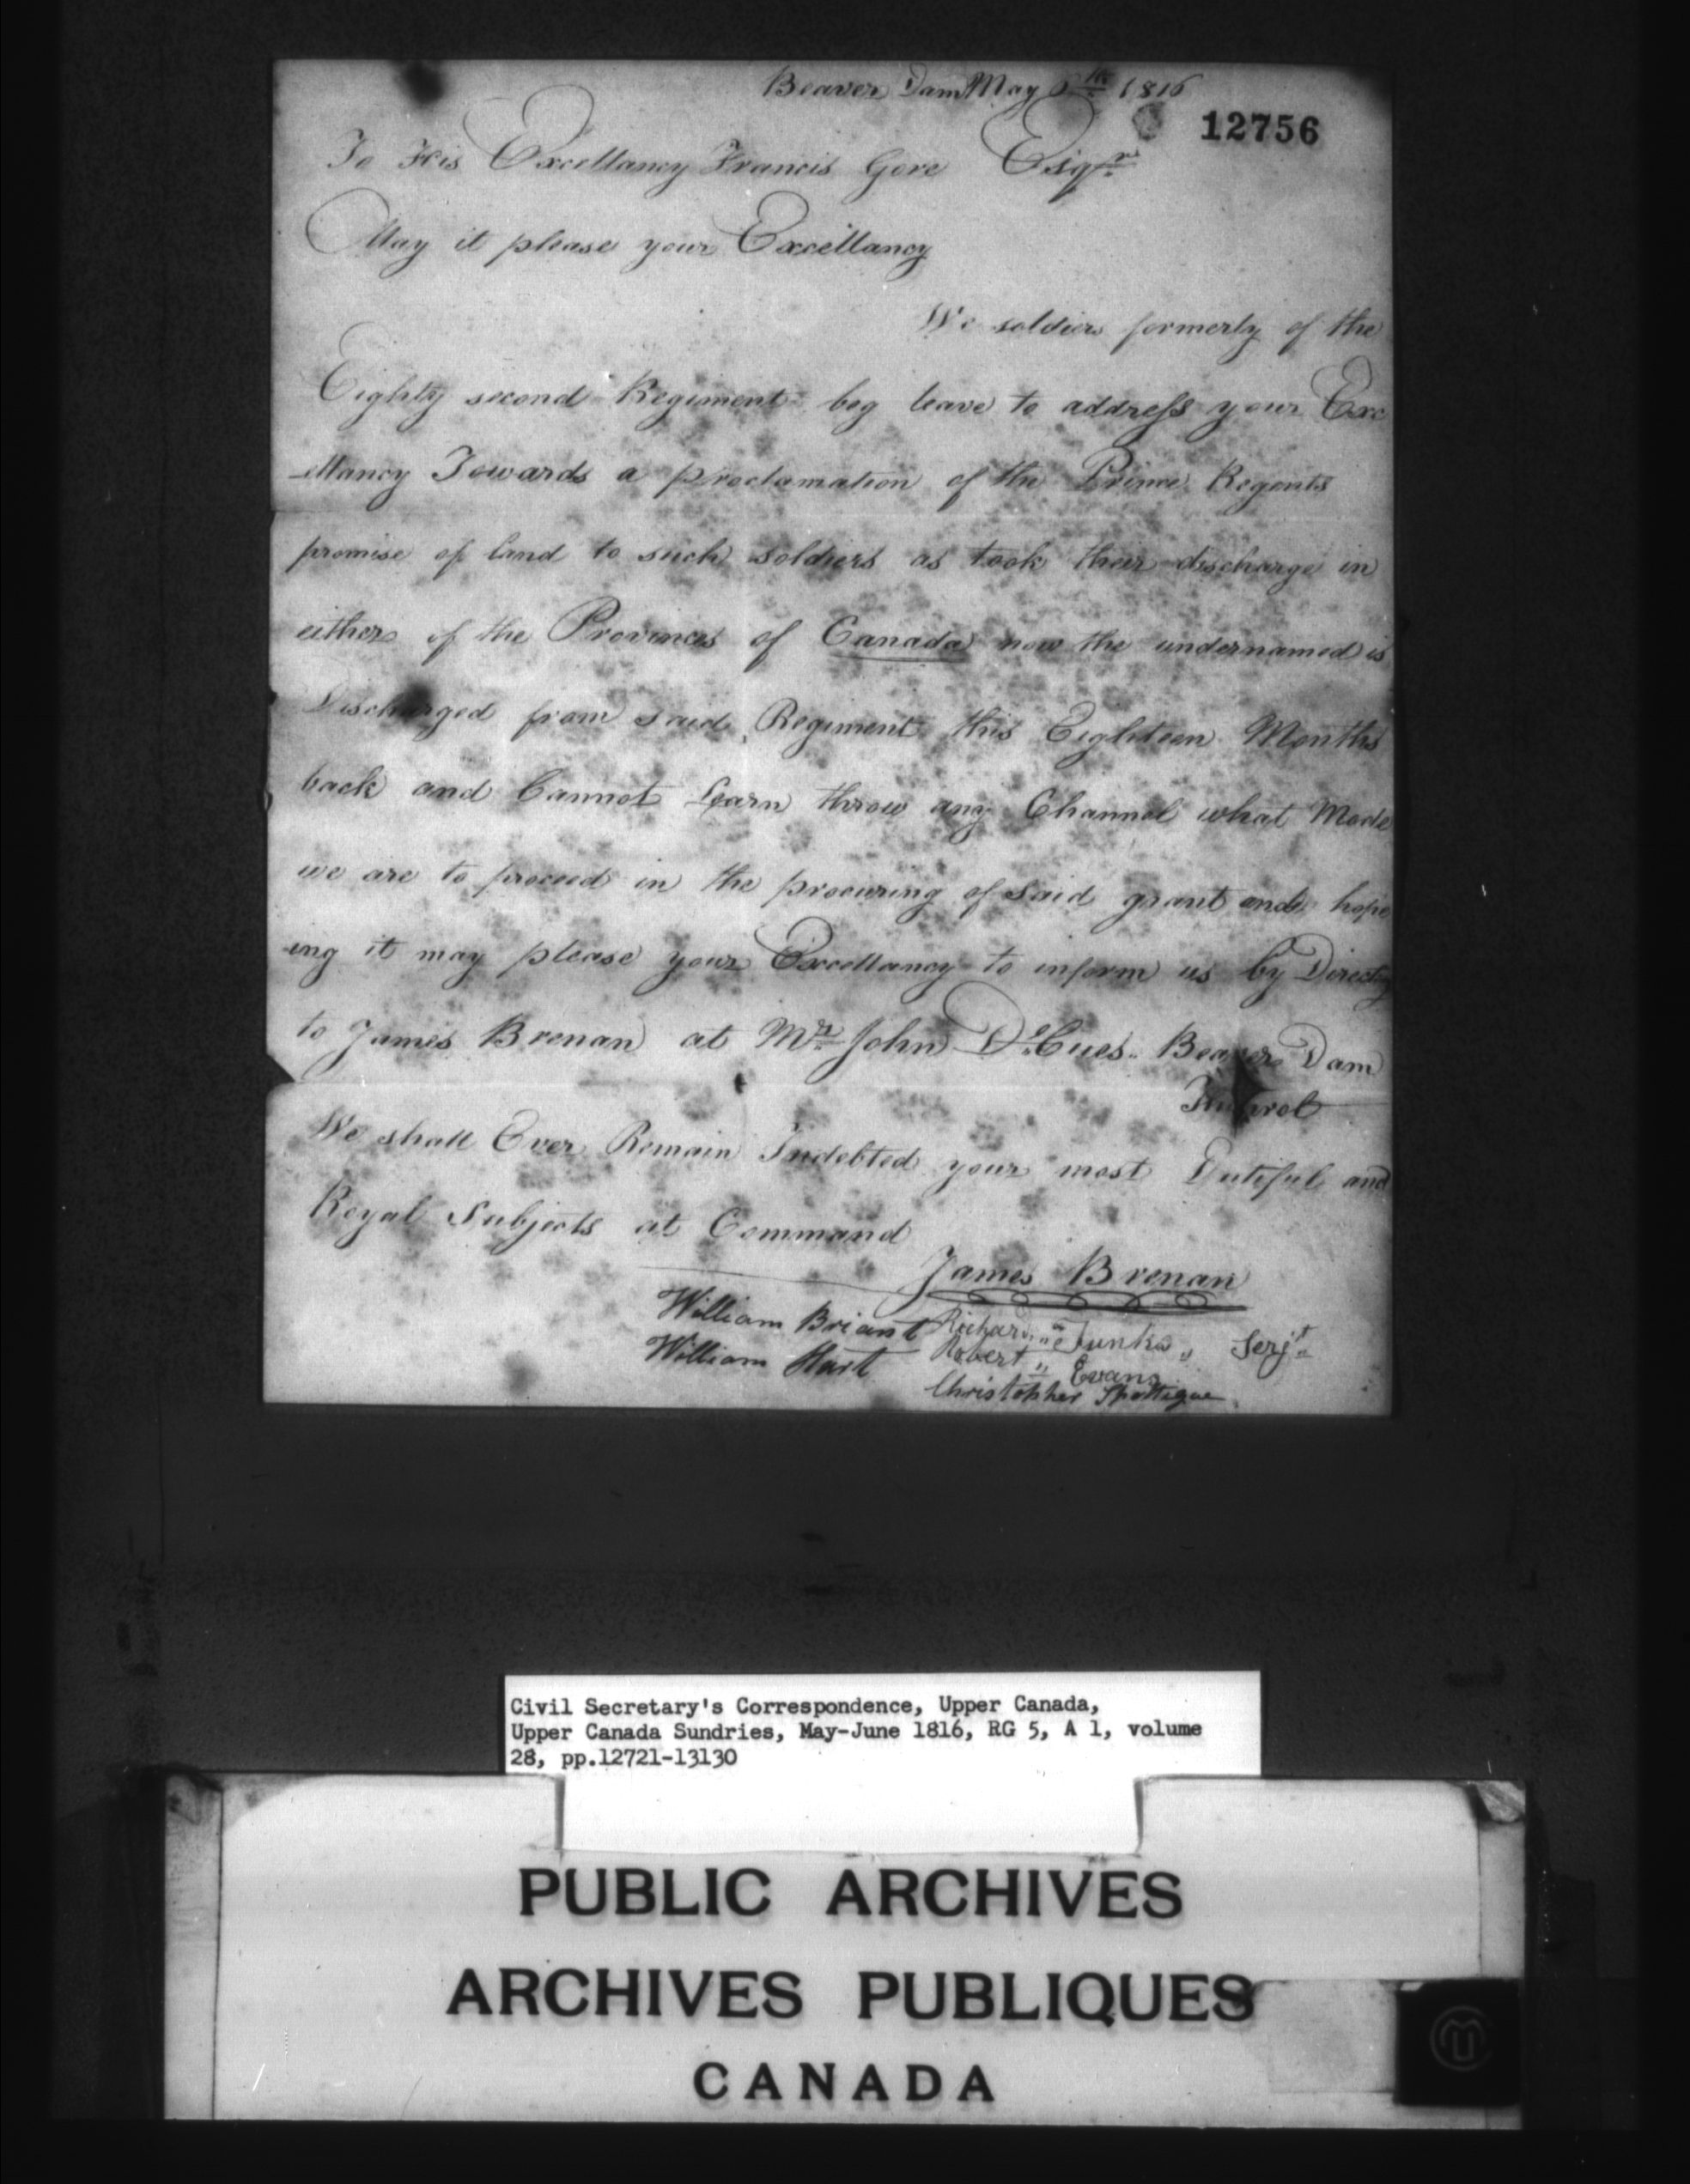 Beaver Dam May 1816
12756
To His Excellancy Francis Gore Esqr.
May it please your Excellancy
We soldiers formerly of the
Eighty second Regiment beg leave to address your Exc
ellancy Towards a proclamation of the Prince Regents
promise of land to such soldiers as took their discharge in
either of the Provinces of Canada now the undernamed is
Discharged from said Regiment this Eighteen Months
back and Cannot Learn throw any Channel what Mode
we are to proceed in the procuring of said grant and hope
ing it may please your Excellancy to inform us by Directg
to James Brenan at Mr. John De Cues.. Beaver Dam
We shall Ever Remain Indebted your most Dutiful and
Royal Subjects at Command
James Brenan
William Briant Richard Junks Serjt
William Hart Robert Evans
Christopher
Civil Secretary's Correspondence, Upper Canada,
Upper Canada Sundries, May-June 1816, RG 5, A 1, volume
28, pp.12721-13130
PUBLIC ARCHIVES
ARCHIVES PUBLIQUES
CANADA